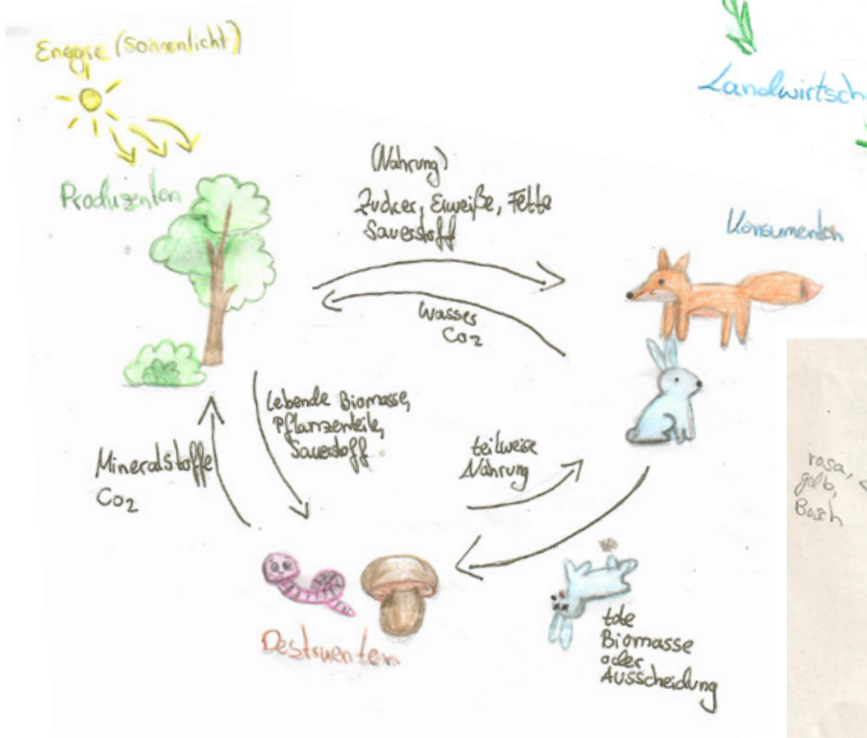 Energie (Sonnenlicht)
Landwirtsch
Produzenten
(Nahrung)
Zucker, Eiweiße, Fette
Sauerstoff
Konsumenten
Wasser
CO2
Lebende Biomasse,
Pflanzenteile,
Sauerstoff
teilweise
Nahrung
Mineralstoffe
CO2
rosa,
gelb,
Busch
Destruenten
tote
Biomasse
oder
Ausscheidung